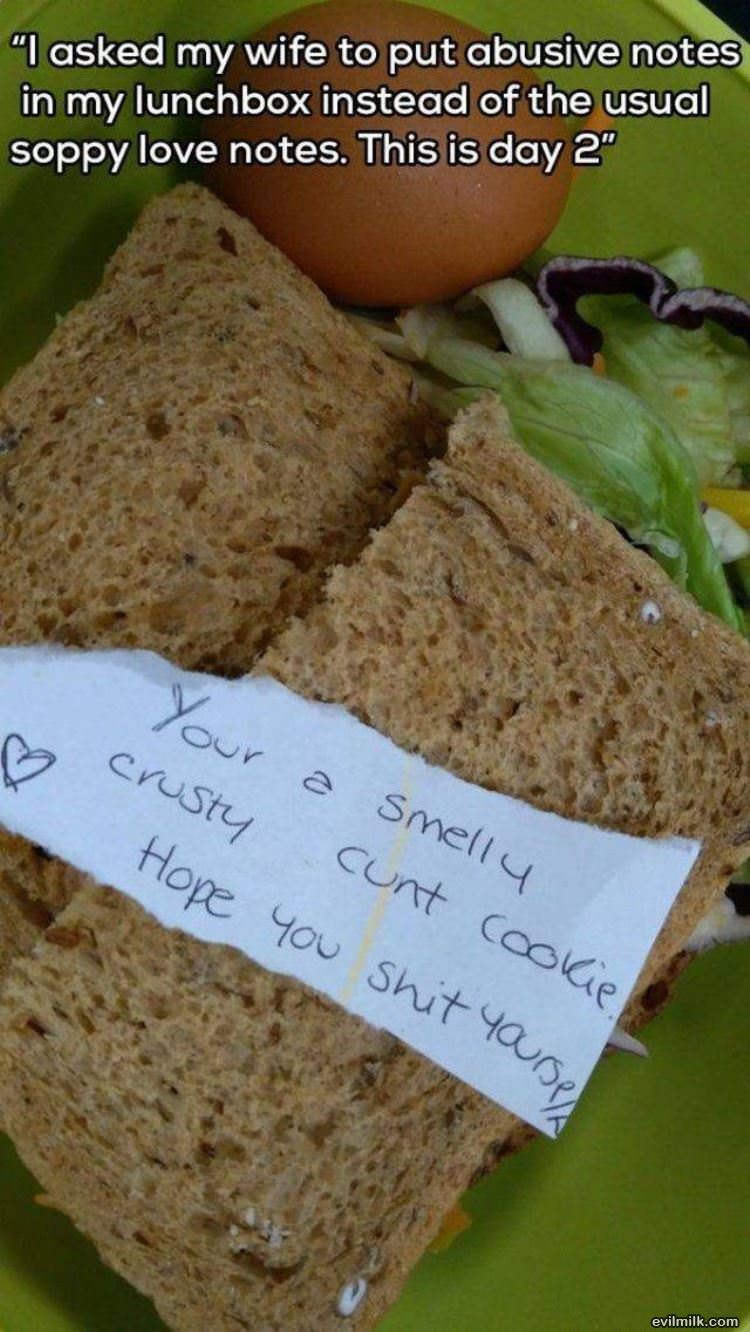 “I asked my wife to put abusive notes
in my lunchbox instead of the usual
soppy love notes. This is day 2”
Your a smelly
♡ crusty cunt cookie.
Hope you shit yourself
evilmilk.com